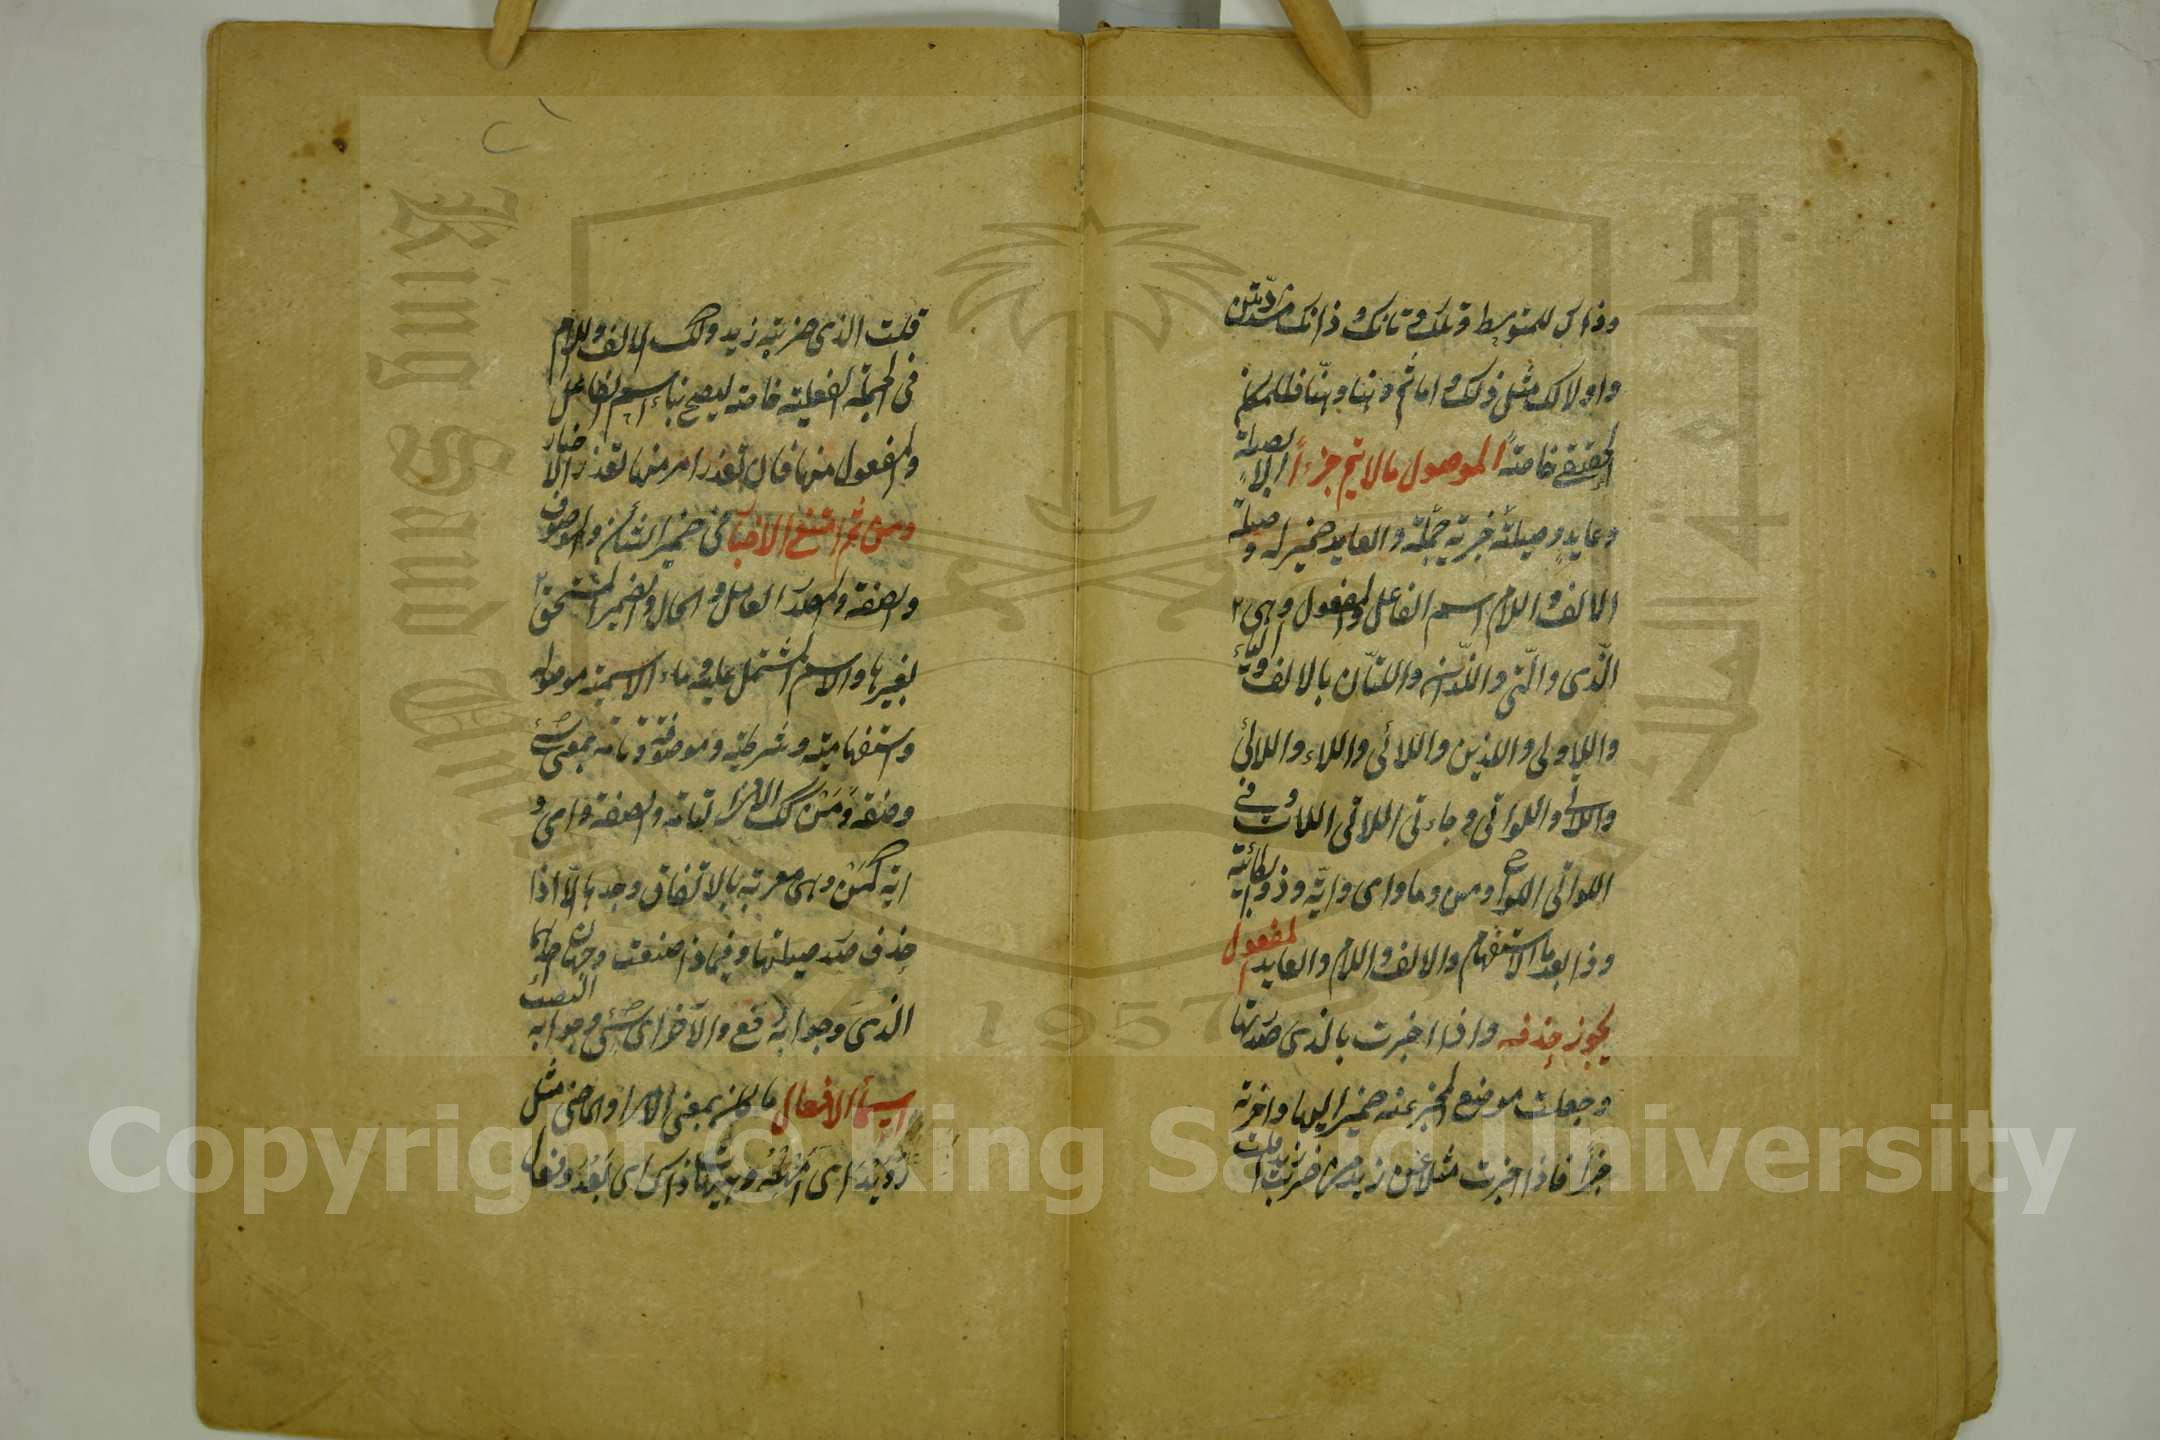 وذاك للمتوسط وتلك وتانك وذانك مشددتين
واولالك مثل ذلك واما ثم وهنا وهنّا فللمكان
الحقيقى خاصة الموصول مالا يتم جزءاً الا بصلة
وعايد وصلته خبرية جملة والعايد ضمير له وصلة
الالف واللام اسم الفاعل والمفعول وهى
الّذى والّتى واللّذان واللتّان بالالف والياء
والاولى والذين واللائى واللاء واللائى
واللاتى واللواتى وجاء فى اللاتى اللات وفى
اللواتى اللوا ومن وما واى وايّة وذو الطائية
وذا بعد ما الاستفهام والالف واللام والعايد المفعول
يجوز حذفه واذا اخبرت بالذى صدرتها
وجعلت موضع المخبر عنه ضميرا لها واخرته
خبرا فاذا اخبرت مثلا عن زيد من ضربت زيدا قلت
قلت الذى ضربته زيد وكذلك الالف واللام
فى الجملة الفعلية خاصة ليصح بناء اسم الفاعل
والمفعول منها فان تعذر امر منها تعذر الاخبار
ومن ثم امتنع الاخبار فى ضمير الشان والموصوف
والصفة والمصدر العامل والحال والضمير المستحق
لغيرها والاسم المشتمل عليه وماء الاسمية موصولة
واستفهامية وشرطية وموصوفة وتامة بمعنى شئ
وصفة ومَن كذلك الا فى التامة والصفة واى و
اية كمَن وهى معربة بالاتفاق وحدها الّا اذا
حذف صدر صلتها وفى ماذا صنعت وجهان احدهما
الذى وجوابه رفع والآخر اى شئ وجوابه النصب
اسماء الافعال ما كان بمعنى الامر او الماضى مثل
رُوَيْدَ اى امهله وهيهات ذاك اى بَعُدَ وفعال
King Saud University
1957
Copyright © King Saud University